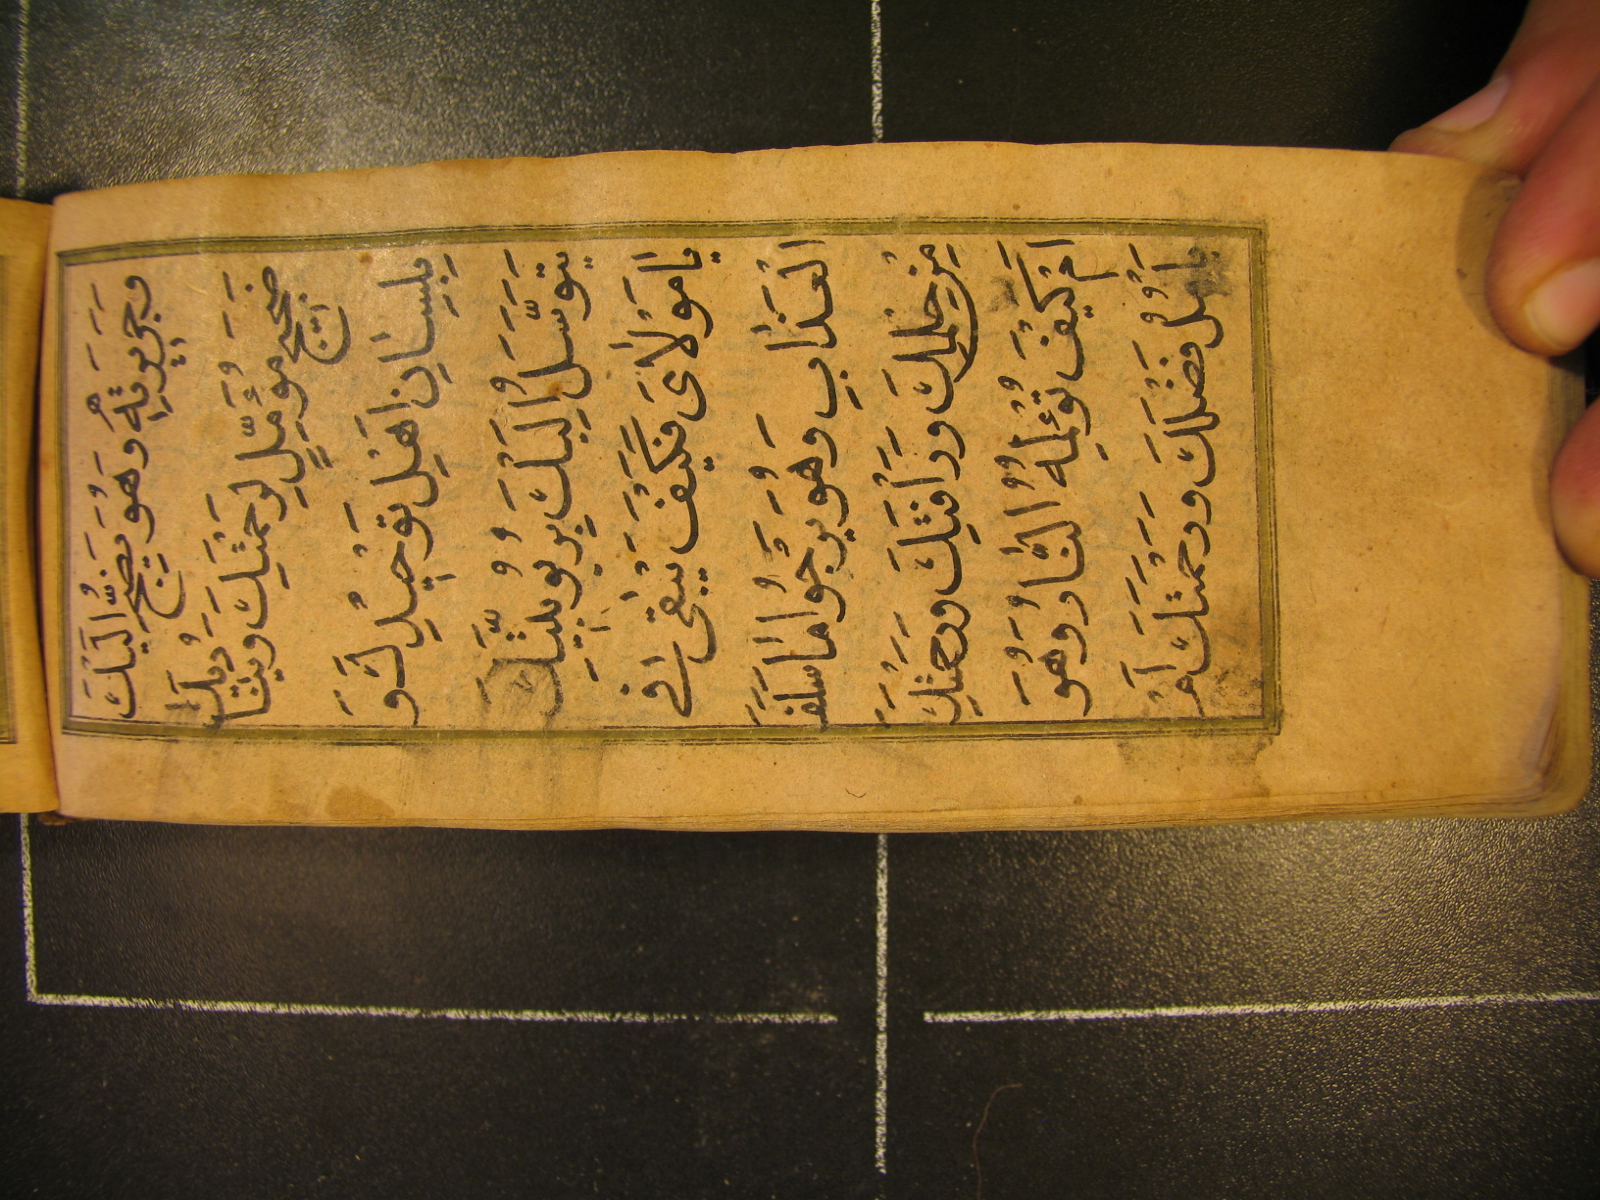 وَجَرِيرَتِهِ وَهُوَ يَضِجُّ اِلَيْكَ
ضَجِيجَ مُؤَمِّلٍ لِرَحْمَتِكَ وَيُنَادِيكَ
بِلِسَانِ اَهْلِ تَوْحِيدِكَ وَ
يَتَوَسَّلُ اِلَيْكَ بِرُبُوبِيَّتِكَ
يَا مَوْلَاىَ فَكَيْفَ يَبْقٰى فِى
الْعَذَابِ وَهُوَ يَرْجُوا مَا سَلَفَ
مِنْ حِلْمِكَ وَرَاْفَتِكَ وَرَحْمَتِكَ
اَمْ كَيْفَ تُؤْلِمُهُ النَّارُ وَهُوَ
يَاْمُلُ فَضْلَكَ وَرَحْمَتَكَ اَمْ